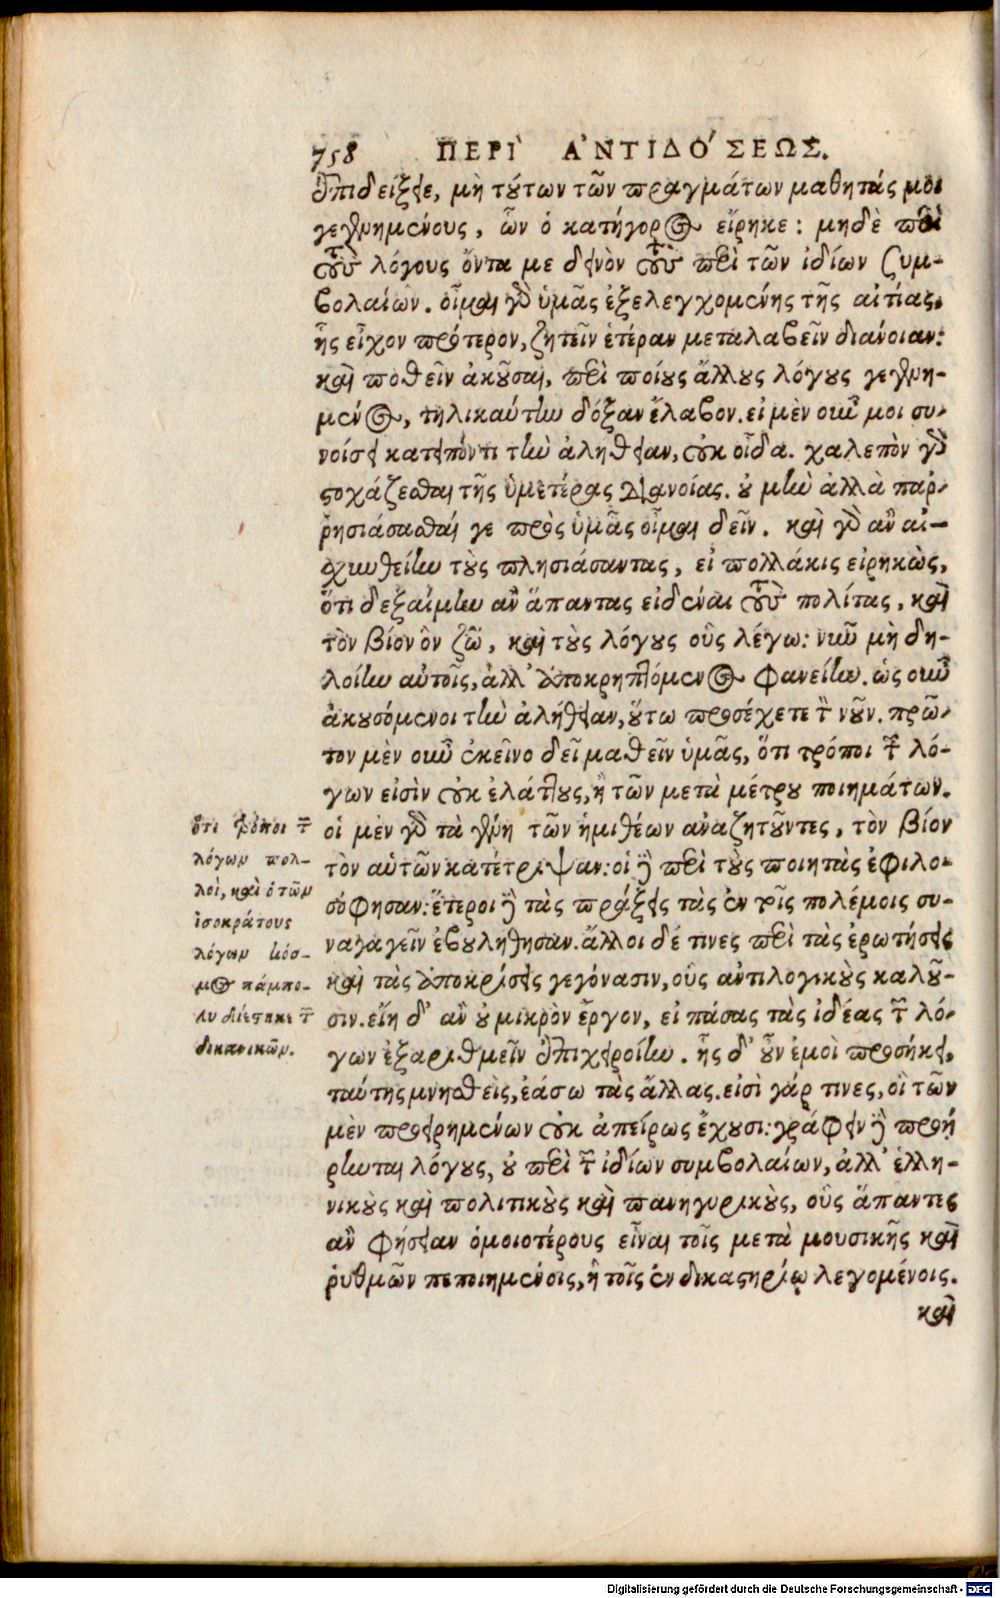 758 ΠΕΡΙ` Α'ΝΤΙΔΟ'ΣΕΩΣ.
ἐπιδείξειε, μὴ τούτων τῶν πραγμάτων μαθητάς μοι
γεγενημένους, ὧν ὁ κατήγορος εἴρηκε: μηδὲ περὶ
τοὺς λόγους ὄντα με δεινὸν τοὺς περὶ τῶν ἰδίων ζυμ-
βολαίων. οἶμαι γὰρ ὑμᾶς ἐξελεγχομένης τῆς αἰτίας,
ἧς εἶχον πρότερον, ζητεῖν ἑτέραν μεταλαβεῖν διάνοιαν:
καὶ ποθεῖν ἀκοῦσαι, περὶ ποίους ἄλλους λόγους γεγενη-
μένος, τηλικαύτην δόξαν ἔλαβον. εἰ μὲν οὖν μοι συ-
νοίσει κατειπόντι τὴν ἀλήθειαν, οὐκ οἶδα. χαλεπὸν γὰρ
στοχάζεσθαι τῆς ὑμετέρας διανοίας. οὐ μὴν ἀλλὰ παρ-
ῥησιάσασθαί γε πρὸς ὑμᾶς οἶμαι δεῖν. καὶ γὰρ ἂν αἰ-
σχυνθείην τοὺς πλησιάσαντας, εἰ πολλάκις εἰρηκὼς,
ὅτι δεξαίμην ἂν ἅπαντας εἰδέναι τοὺς πολίτας, καὶ
τὸν βίον ὃν ζῶ, καὶ τοὺς λόγους οὓς λέγω: νῦν μὴ δη-
λοίην αὐτοῖς, ἀλλ' ἀποκρηπτόμενος φανείην. ὡς οὖν
ἀκουσόμενοι τὴν ἀλήθειαν, οὕτω προσέχετε τὸν νοῦν. πρῶ-
τον μὲν οὖν ἐκεῖνο δεῖ μαθεῖν ὑμᾶς, ὅτι τρόποι τῶν λό-
γων εἰσὶν οὐκ ἐλάττους, ἢ τῶν μετὰ μέτρου ποιημάτων.
οἱ μὲν γὰρ τὰ γένη τῶν ἡμιθέων ἀναζητοῦντες, τὸν βίον
τὸν αὑτῶν κατέτριψαν: οἱ δὲ περὶ τοὺς ποιητὰς ἐφιλο-
σόφησαν: ἕτεροι δὲ τὰς πράξεις τὰς ἐν τοῖς πολέμοις συ-
ναγαγεῖν ἐβουλήθησαν. ἄλλοι δέ τινες περὶ τὰς ἐρωτήσεις
καὶ τὰς ἀποκρίσεις γεγόνασιν, οὓς ἀντιλογικοὺς καλοῦ-
σιν. εἴη δ' ἂν οὐ μικρὸν ἔργον, εἰ πάσας τὰς ἰδέας τῶν λό-
γων ἐξαριθμεῖν ἐπιχειροίην. ἧς δ' οὖν ἐμοὶ προσήκει,
ταύτης μνησθεὶς, ἐάσω τὰς ἄλλας. εἰσὶ γάρ τινες, οἳ τῶν
μὲν προειρημένων οὐκ ἀπείρως ἔχουσι: γράφειν δὲ προῄ
ρηνται λόγους, οὐ περὶ τῶν ἰδίων συμβολαίων, ἀλλ' ἑλλη-
νικοὺς καὶ πολιτικοὺς καὶ πανηγυρικοὺς, οὓς ἅπαντες
ἂν φήσειαν ὁμοιοτέρους εἶναι τοῖς μετὰ μουσικῆς καὶ
ῥυθμῶν πεποιημένοις, ἢ τοῖς ἐν δικαστηρίῳ λεγομένοις.
καὶ
ὅτι τρόποι τῶν
λόγων πολ-
λοὶ, καὶ ὁ τῶν
ἰσοκράτους
λόγων κόσ-
μος πάμπο-
λυ διέστηκε τῶν
δικανικῶν.
Digitalisierung gefördert durch die Deutsche Forschungsgemeinschaft - DFG